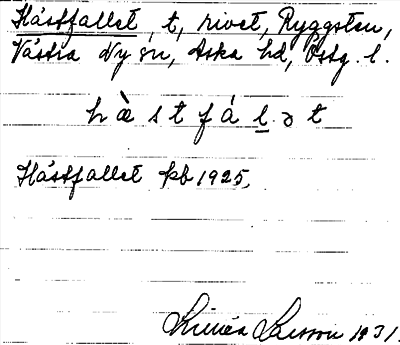 Hästfallet, t, rivet, Ryggsten,
Västra Ny sn, Aska hd, Östg. l.
hàstfálət
Hästfallet kb 1925.
Linnéa Larsson 1931.